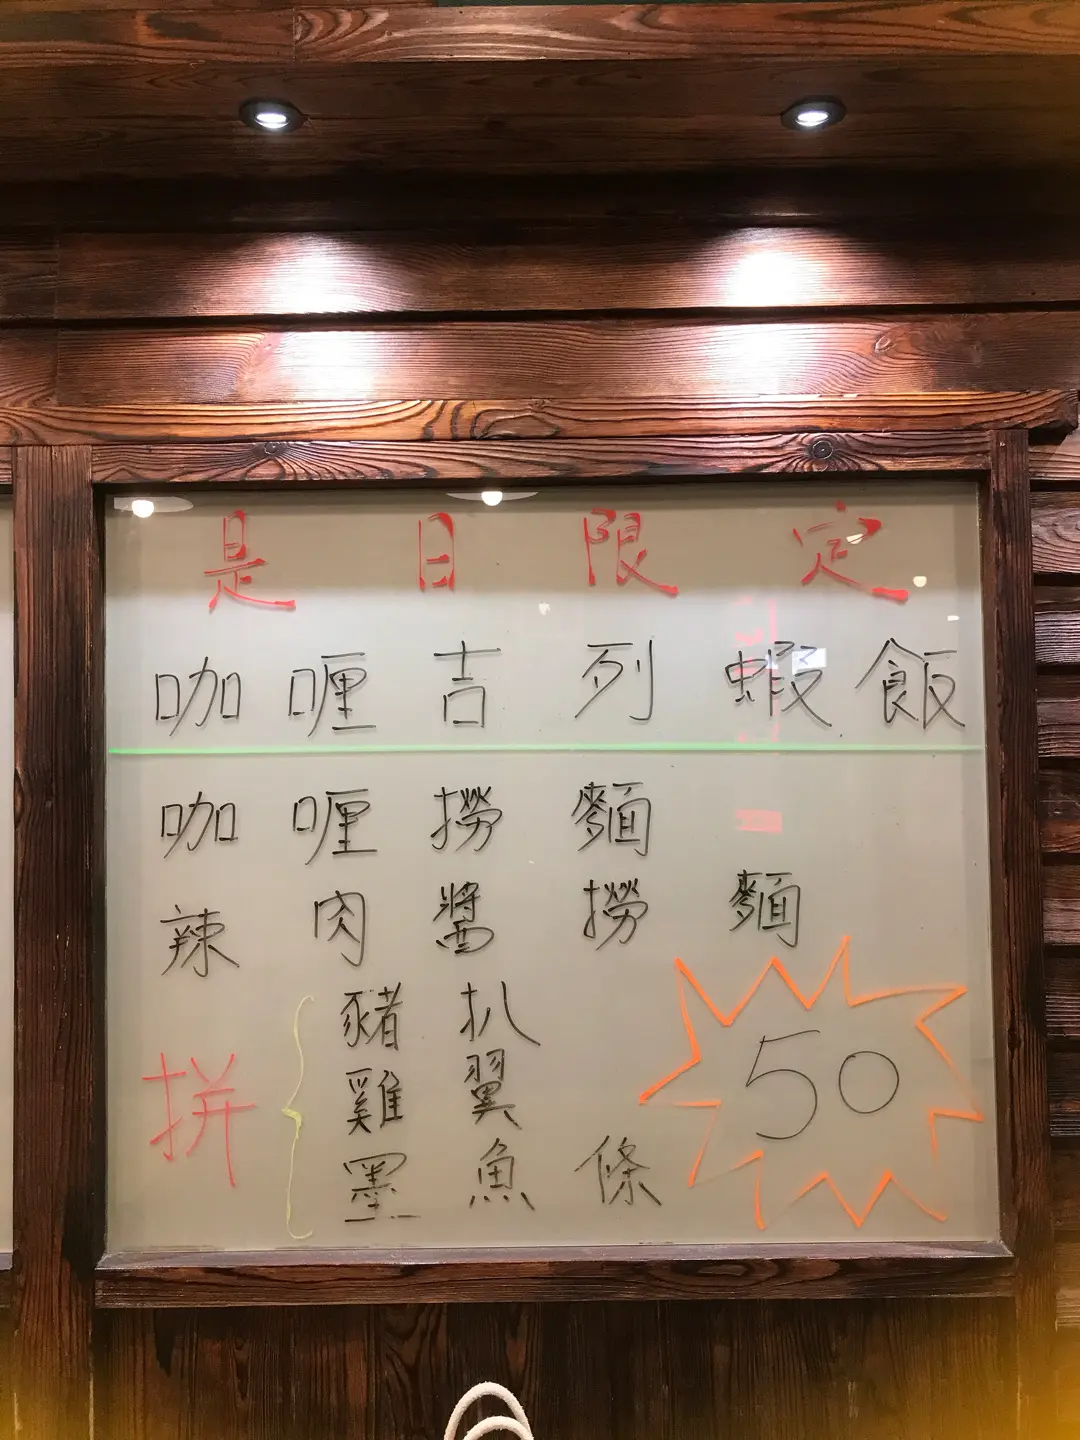 是日限定
咖喱吉列蝦飯
咖喱撈麵
辣肉醬撈麵
拼
豬扒
雞翼
墨魚條
50